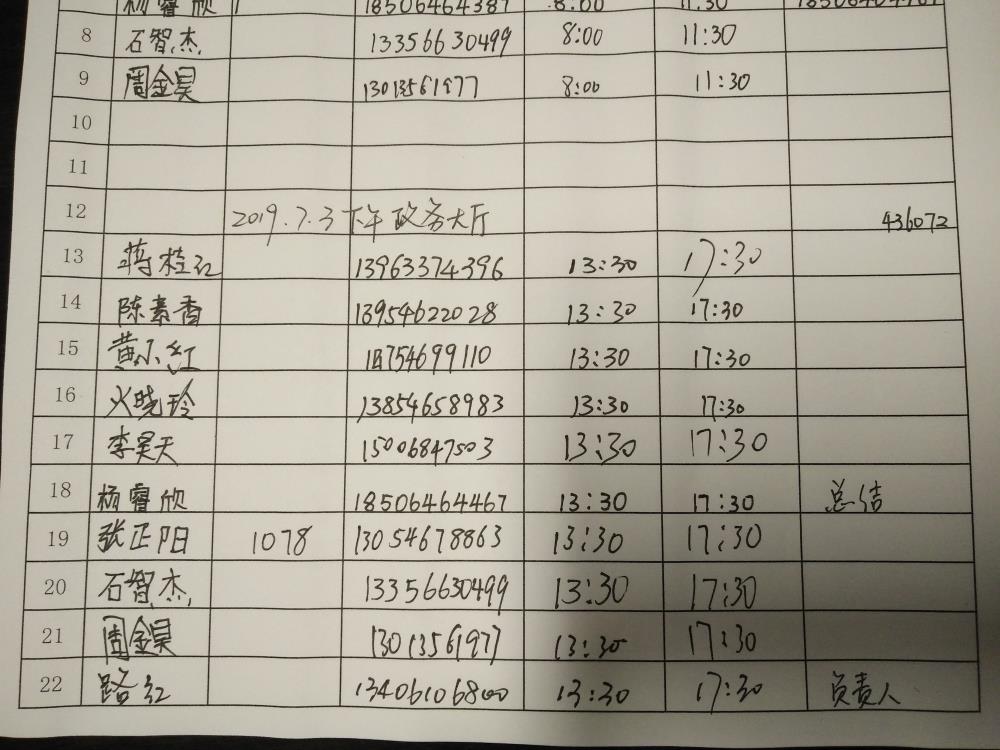 杨睿欣 18506464387 8:00 11:30
8 石智杰 13356630499 8:00 11:30
9 周金昊 13013561977 8:00 11:30
10
11
12 2019.7.3 下午 政务大厅 436072
13 蒋桂红 13963374396 13:30 17:30
14 陈素香 13954622028 13:30 17:30
15 黄小红 13:30 17:30
16 火晓玲 13854658983 13:30 17:30
17 李昊天 15006847503 13:30 17:30
18 杨睿欣 18506464467 13:30 17:30 总结
19 张正阳 1078 13054678863 13:30 17:30
20 石智杰 13356630499 13:30 17:30
21 周金昊 13013561977 13:30 17:30
22 路红 13406106800 13:30 17:30 负责人